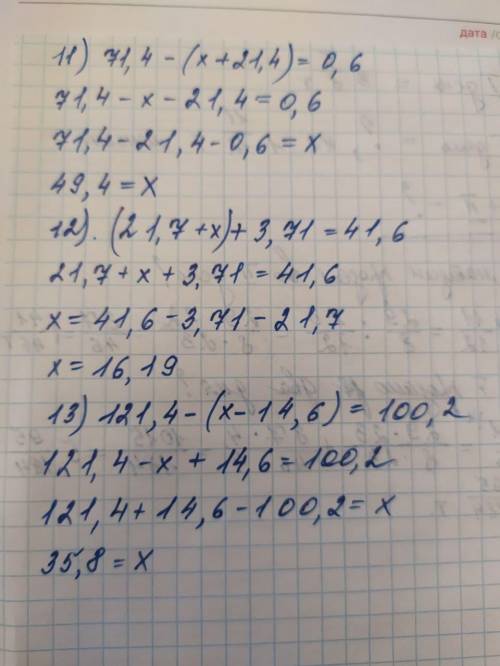 дата
11) 71,4-(x+21,4)=0,6
71,4-x-21,4=0,6
71,4-21,4-0,6=x
49,4=x
12).(21,7+x)+3,71=41,6
21,7+x+3,71=41,6
x=41,6-3,71-21,7
x=16,19
13) 121,4-(x-14,6)=100,2
121,4-x+14,6=100,2
121,4+14,6-100,2=x
35,8=x